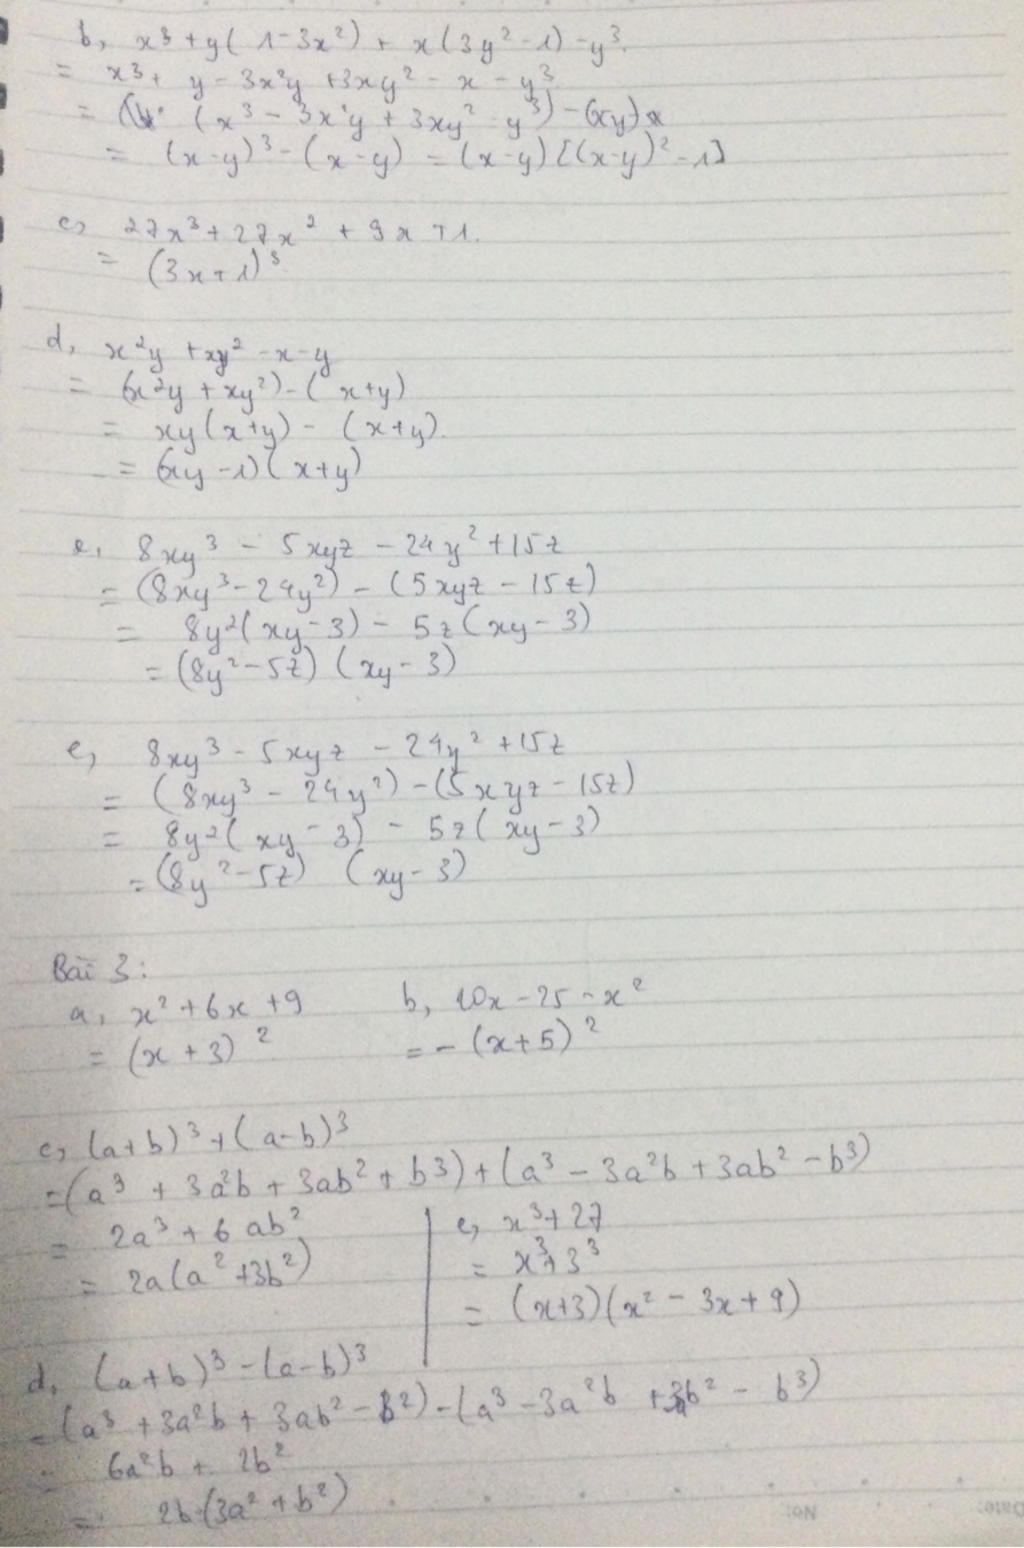 b, x³ + y(1-3x²) + x(3y²-1) - y³.
= x³ + y - 3x²y + 3xy² - x - y³
= (x³ - 3x²y + 3xy² - y³) - (x-y)
= (x-y)³ - (x-y) = (x-y)[(x-y)² - 1]
c, 27x³ + 27x² + 9x + 1.
= (3x+1)³
d, x²y + xy² - x - y
= (x²y + xy²) - (x+y)
= xy(x+y) - (x+y).
= (xy-1)(x+y)
e, 8xy³ - 5xyz - 24y² + 15z
= (8xy³ - 24y²) - (5xyz - 15z)
= 8y²(xy-3) - 5z(xy-3)
= (8y² - 5z)(xy-3)
e, 8xy³ - 5xyz - 24y² + 15z
= (8xy³ - 24y²) - (5xyz - 15z)
= 8y²(xy-3) - 5z(xy-3)
= (8y² - 5z) (xy-3)
Bài 3:
a, x² + 6x + 9 b, 10x - 25 - x²
= (x+3)² = -(x+5)²
c, (a+b)³ + (a-b)³
= (a³ + 3a²b + 3ab² + b³) + (a³ - 3a²b + 3ab² - b³)
= 2a³ + 6ab²
= 2a(a² + 3b²)
e, x³ + 27
= x³ + 3³
= (x+3)(x² - 3x + 9)
d, (a+b)³ - (a-b)³
= (a³ + 3a²b + 3ab² - b²) - (a³ - 3a²b + 3b² - b³)
6a²b + 2b²
= 2b.(3a² + b²)
No:
Date: